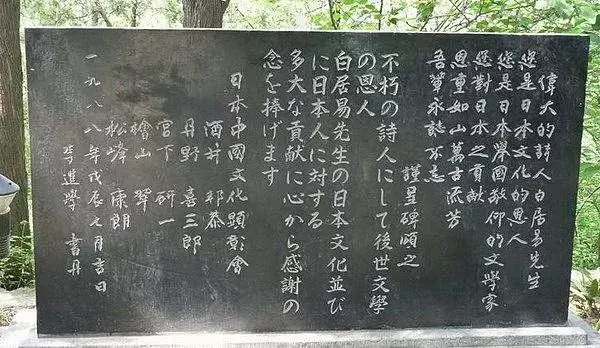 偉大的詩人白居易先生
您是日本文化的恩人
您是日本舉国敬仰的文學家
您對日本之貢献
恩重如山萬古流芳
吾輩永誌不忘
謹呈碑頌之
不朽の詩人にして後世文學
の恩人
白居易先生の日本文化並び
に日本人に対する
多大な貢献に心から感謝の
念を捧げます
日本中國文化顕彰會
酒井 邦恭
丹野 喜三郎
宮下 研一
檜山 翠
松峰 康朗
一九八八年戊辰七月吉日
李進學 書丹